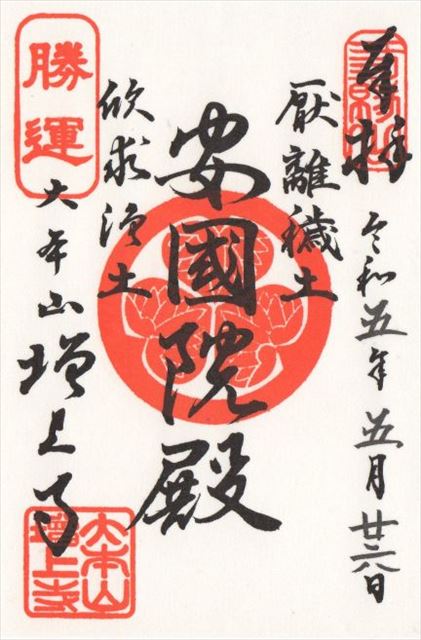 奉拝
令和五年五月廿六日
厭離穢土
安國院殿
欣求浄土
勝運
大本山増上寺
大本山
增上寺